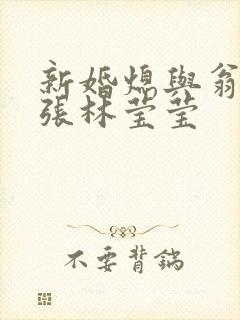 新婚熄與翁
張林莹莹
不要背鍋